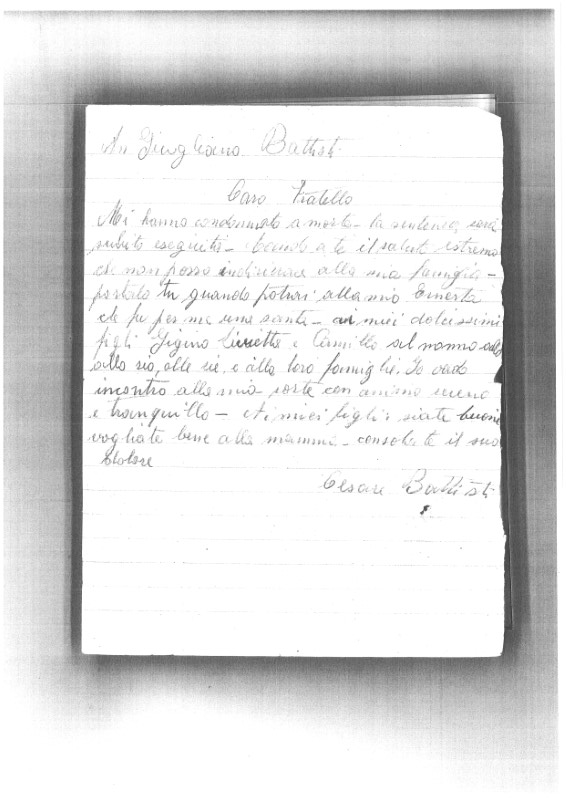 An Giugliano Battisti
Caro Fratello
Mi hanno condannato a morte - la sentenza sarà
subito eseguita - Mando a te il saluto estremo
che non posso indirizzare alla mia famiglia -
portalo tu quando potrai alla mia Ernesta
che fu per me una santa - ai miei dolcissimi
figli Gigino Livietta e Camillo al nonno
alla zia, alle zie, e alla loro famiglie. Io vado
incontro alla mia sorte con animo sereno
e tranquillo - Ai miei figli: siate buoni
vogliate bene alla mamma - consolate il suo
dolore
Cesare Battisti